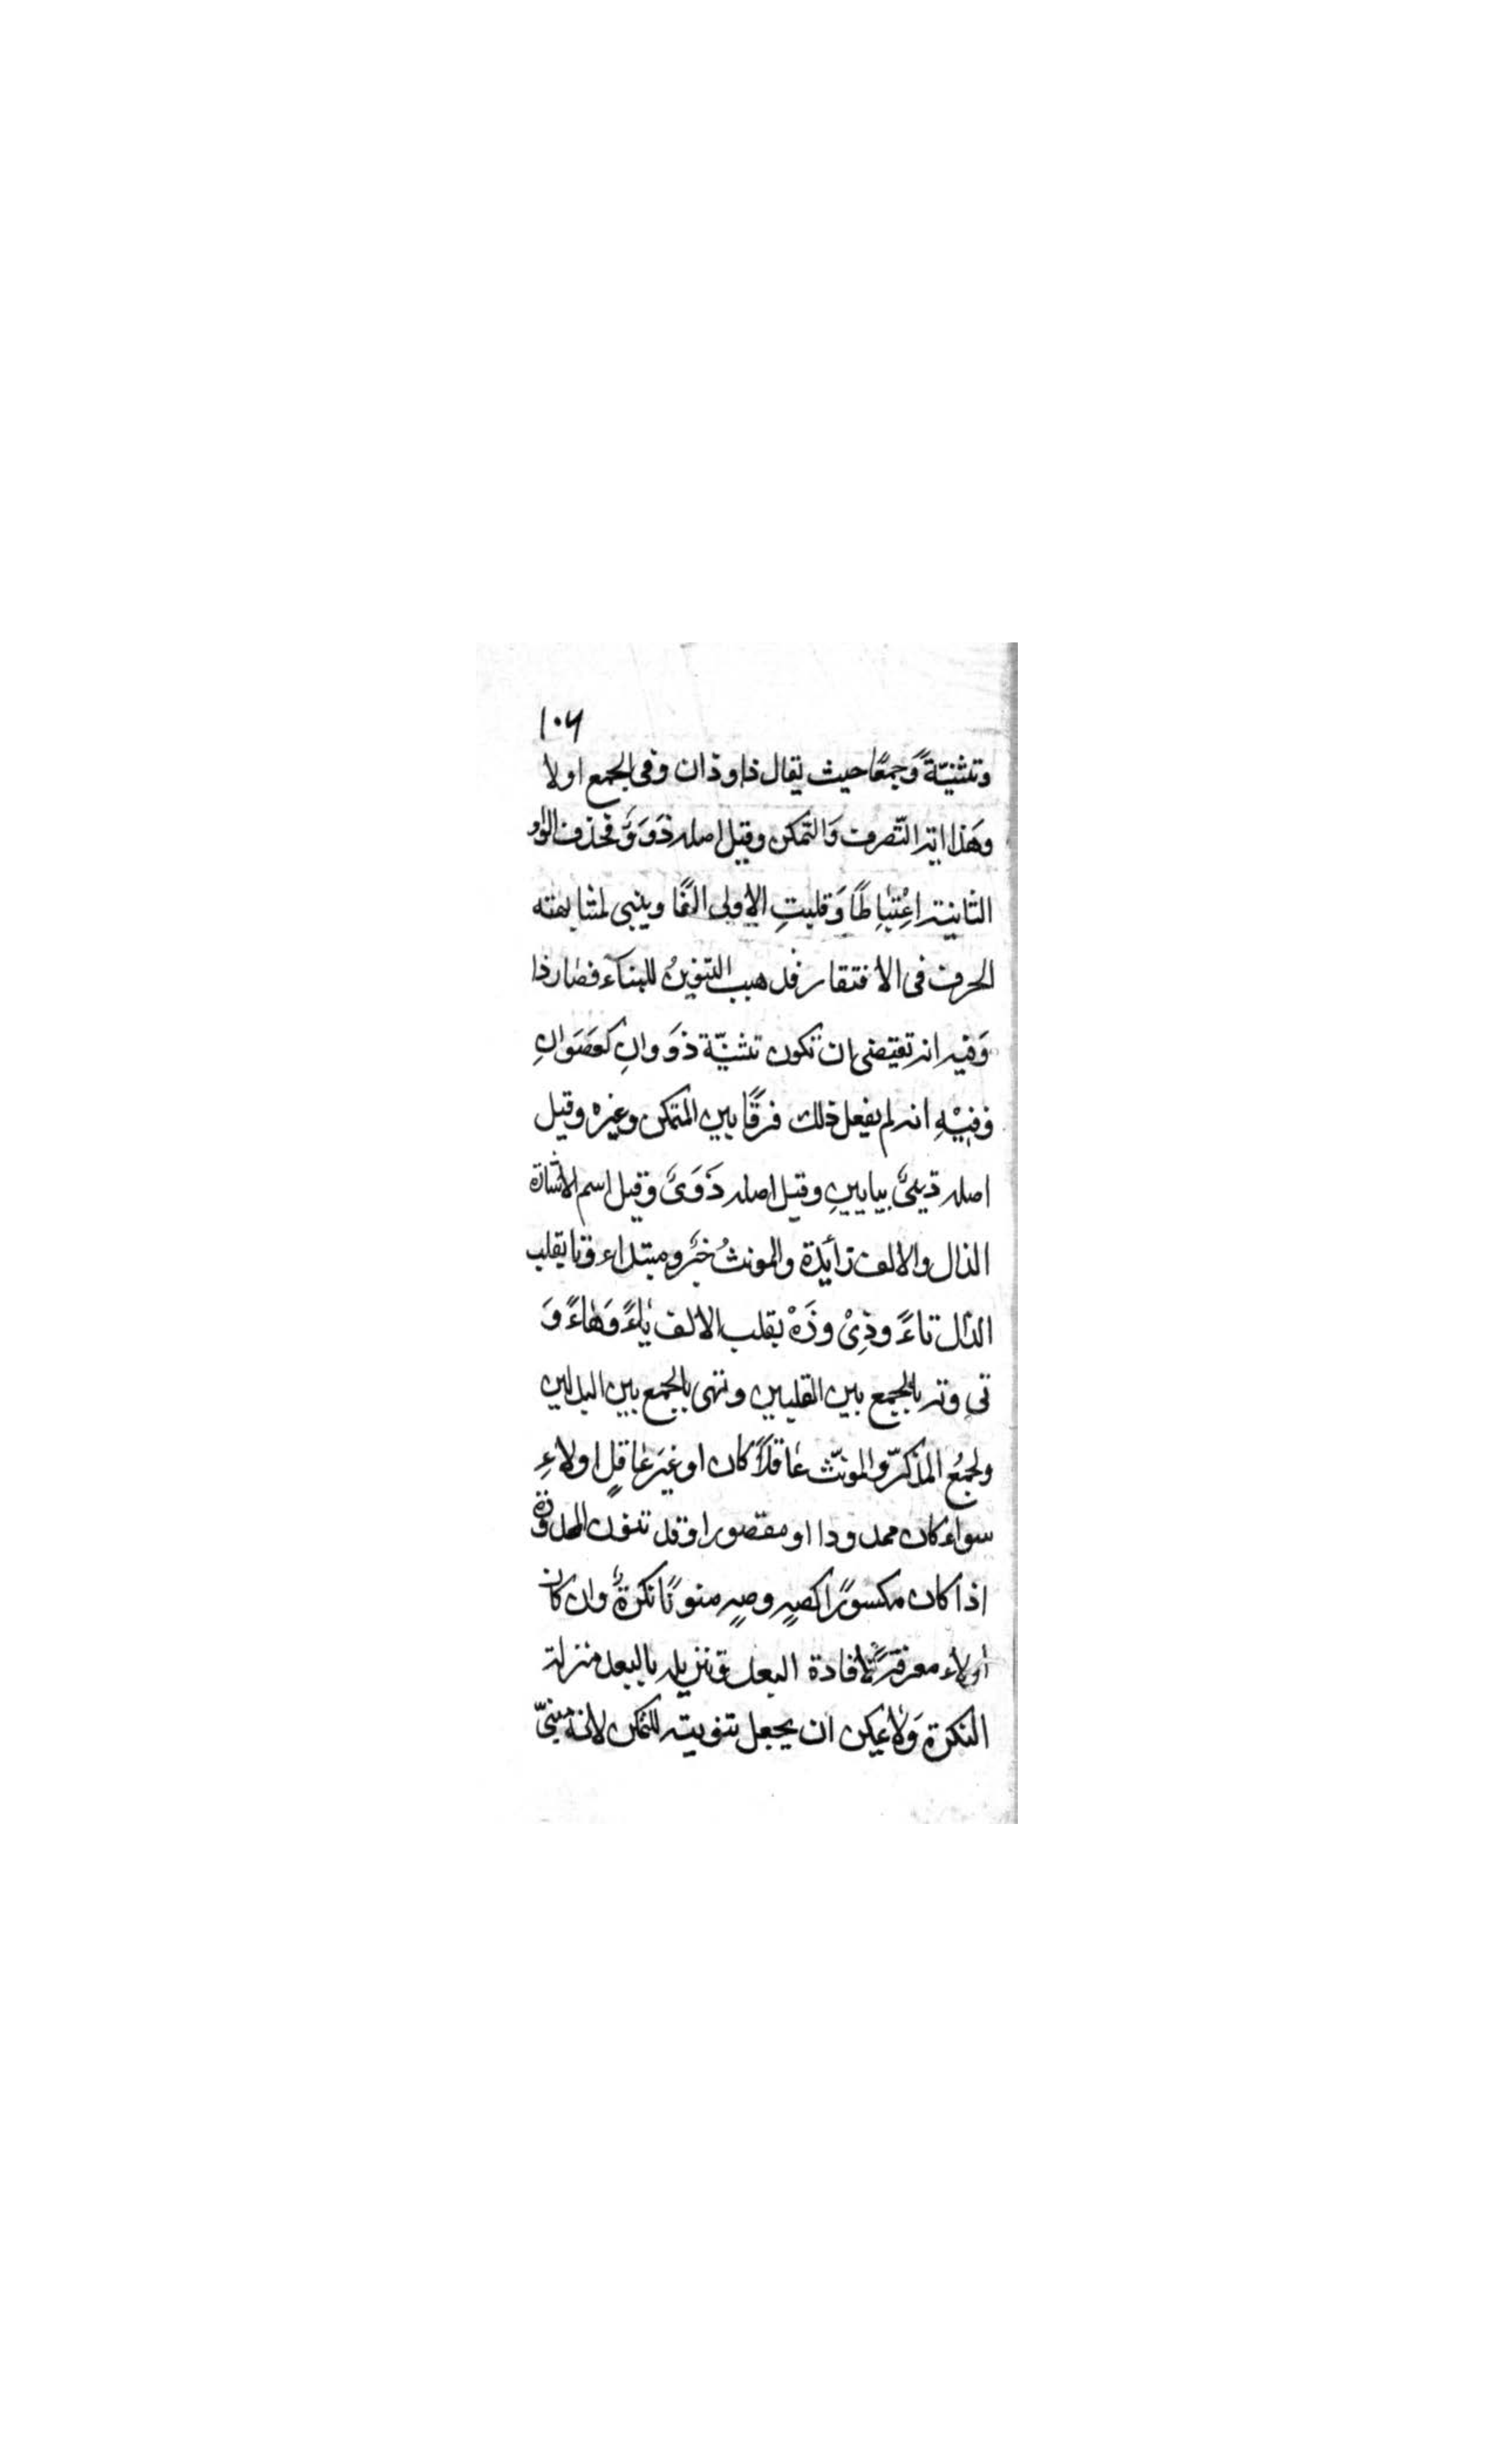 ١٠٦
وتثنيّةً وَّجمعًا حيث يقال ذا وذان وفى الجمع اولا
وهَذا اثر التّصرف وَالتمكن وقيل اصله ذَوَوٌ فحذف الواو
الثانية اعْتِبَاطًا وَقلبتِ الاولى الفًا وينبى لمشابهته
الحرف فى الافتقار فذهب التنوينُ للبناء فصار ذا
وَفيه انه تقيتضى ان تكون تثنيّة ذوَ وانِ كعَصَوانِ
وَفِيْهِ انه لم يفعل ذلك فرقًا بين المتمكن وغيره وقيل
اصله ذيىٌ بيايينِ وقيل اصله ذَوَىٌ وقيل اسم الاشارة
الذال والالف زائدة والمونثُ خبرٌ ومبتداء وتا يقلب
الذال تاءً وذِىْ وذَهْ بقلب الالف يَاءً وَهَاءً وَ
تى وته بالجمع بين القلبين وتهى بالجمع بين البدلين
ولجمعُ المذكرّ والمونّث عَاقلاً كان او غيَر عَاقلٍ اولاءِ
سواء كان ممدودا او مقصورا وقد تنون الممدودة
اذا كان مكسورًا كصهٍ وصهٍ منونًا نكرةٌ وان كان
اولاء معرفةً لافادة البعد بتنزيله بالبعد منزلة
النكرة وَلا يمكن ان يجعل تنوينه للتمكن لانهٗ مبنىّ